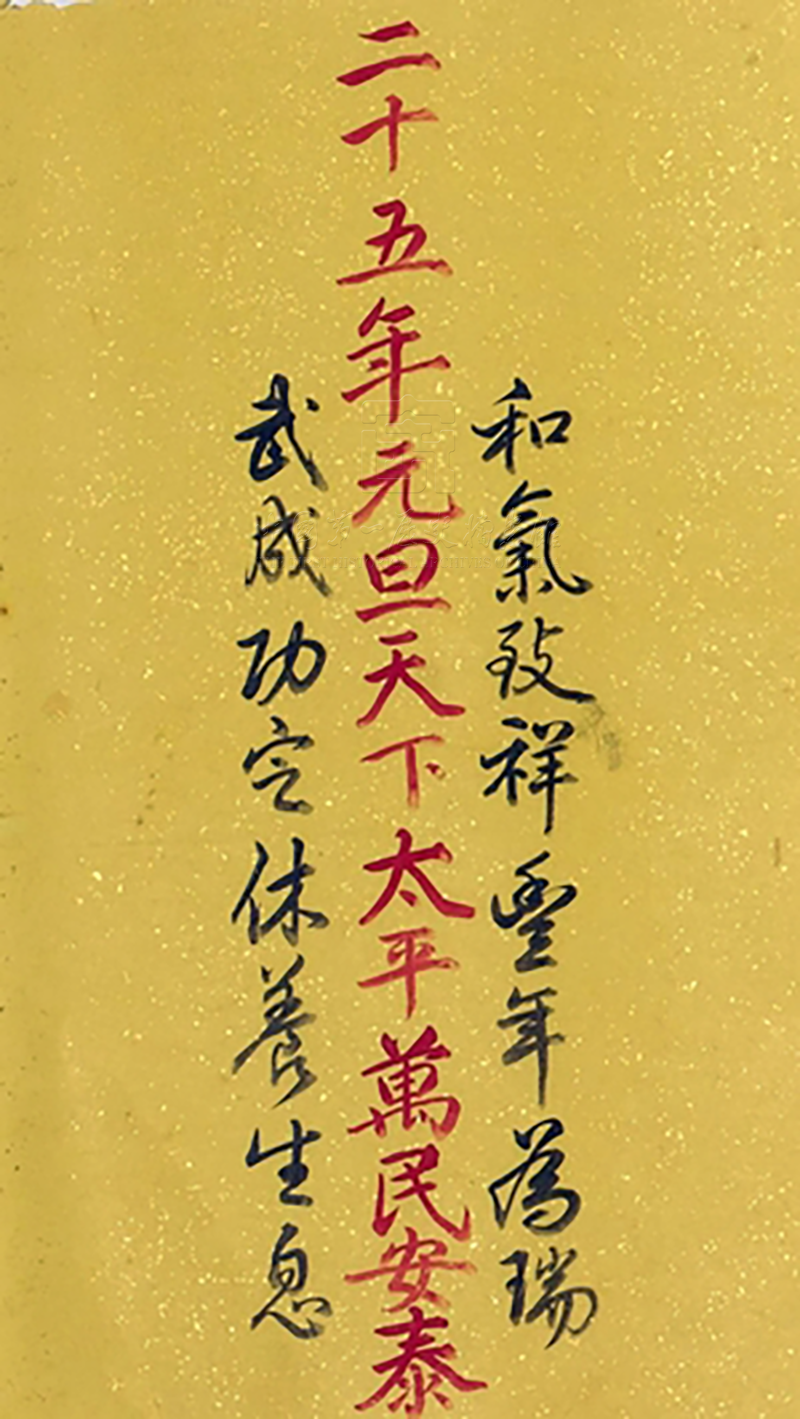 和氣致祥豐年為瑞
二十五年元旦天下太平萬民安泰
武成功定休養生息